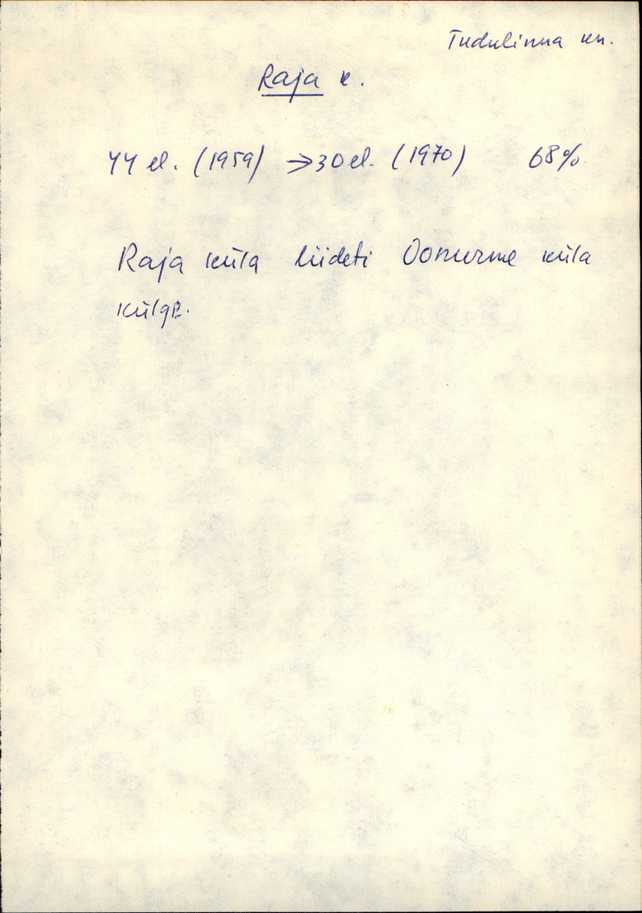 Tudulinna kn.
Raja k.
44 el. (1959) → 30 el. (1970) 68%
Raja küla liideti Oonurme küla
külge.